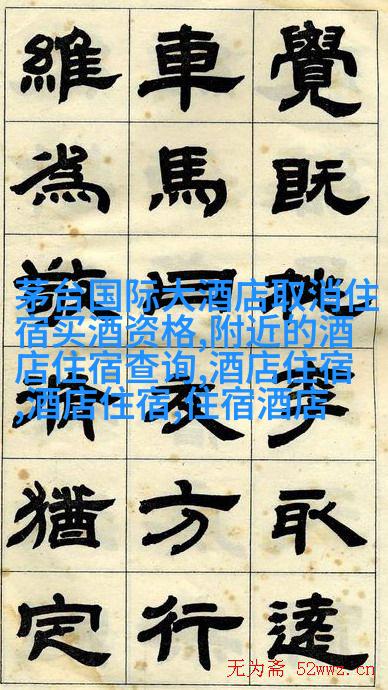 覺既取
車馬同衣方行
維為猶定
茅台国际大酒店取消住
宿买酒资格,附近的酒
店住宿查询,酒店住宿
,酒店住宿,住宿酒店
无为斋 52wwz.cn